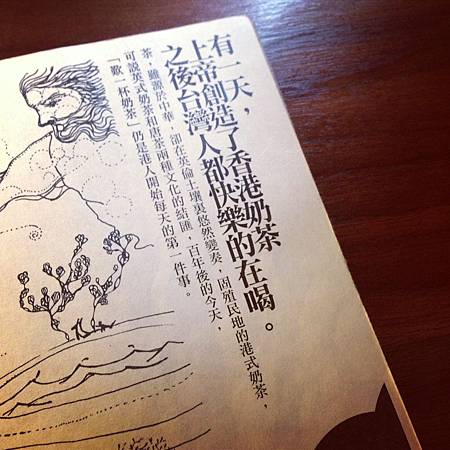 有一天，
上帝創造了香港奶茶
之後台灣人都快樂的在喝。
茶，雖源於中華，卻在英倫土壤裏悠然變奏，因殖民地的港式奶茶，
可說英式奶茶和唐茶兩種文化的結匯，百年後的今天，
「歎一杯奶茶」仍是港人開始每天的第一件事。